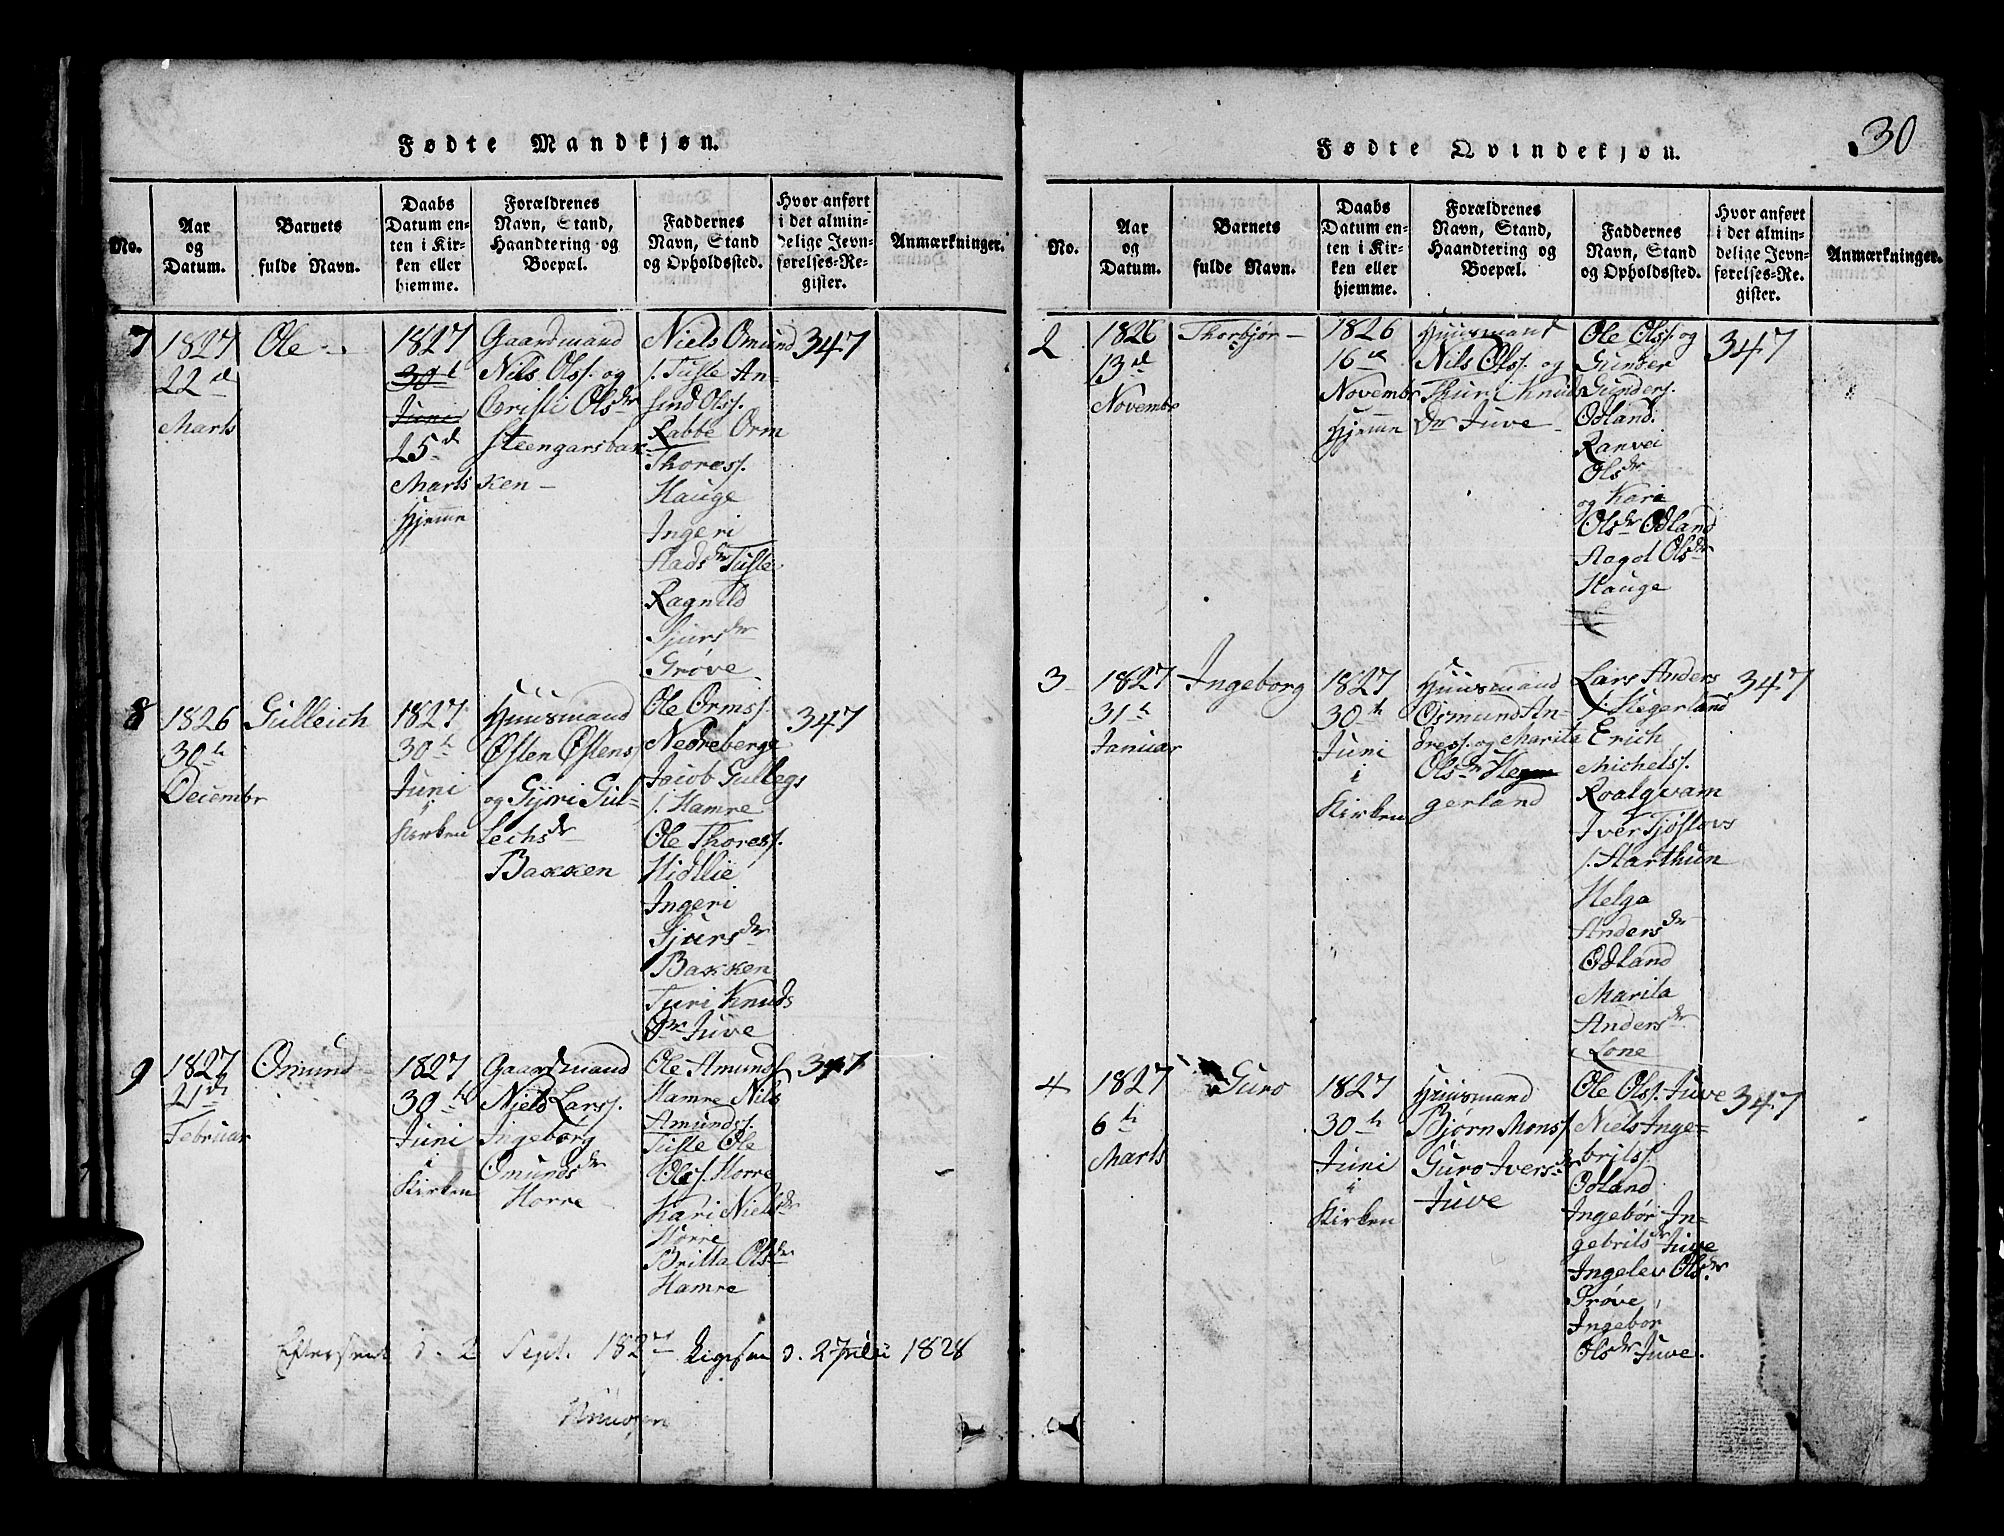 Fødte Mandkjøn.
No.
Aar
og
Datum.
Barnets
fulde Navn.
Daabs
Datum en-
ten i Kir-
ken eller
hiemme.
Forældrenes
Navn, Stand,
Haandtering og
Boepæl.
Faddernes
Navn, Stand
og Opholdssted.
Hvor anført
i det almin-
delige Jevn-
førelses-Re-
gister.
Anmærkninger.
7
1827
22d
Marts
Ole
1827
30t
Juni
25d
Marts
Hjemme
Gaardmand
Nils Olss. og
Christi Olsdr
Steengarsbak-
ken
Niels Omund
s. Tufte An-
find Olss.
Rabbe Orm
Thoress.
Hauge
Ingeri
Aadsdr Tufte
Ragnild
Sjursdr
Grøve
347
8
1826
30th
Decembr
Gulleich
1827
30th
Juni
i
Kirken
Huusmand
Østen Østens.
og Gyri Gul-
lechsdr
Bakken
Ole Ormss.
Nedreberge
Jacob Gullegs
s. Hamre
Ole Thoress.
Hidllie
Ingeri
Sjursdr
Bakken
Turi Knuds
Dr Juve
347
9
1827
21de
Februar
Omund
1827
30th
Juni
i
Kirken
Gaardmand
Niels Larss.
Ingeborg
Omundsdr
Horre
Ole Amunds
Hamre Nils
Amundss.
Tufte Ole
Olss. Horre
Kari Nielsdr
Horre
Britta Olsdr
Hamre
347
Efterseet d. 2 Sept. 1827 d. 2 Julii 1828
Fødte Qvindekjøn.
30
No.
Aar
og
Datum.
Barnets
fulde Navn.
Daabs
Datum en-
ten i Kir-
ken eller
hjemme.
Forældrenes
Navn, Stand,
Haandtering og
Boepæl.
Faddernes
Navn, Stand
og Opholdssted.
Hvor anført
i det almin-
delige Jevn-
førelses-Re-
gister.
Anmærkninger.
2
1826
13d
Novembr
Thorbjør
1826
16d
Novembr
Hjemme
Huusmand
Nils Olss. og
Thuri Knuds
Dr Juve
Ole Olss. og
Gunder
Gunders.
Odland.
Ranvei
Olsdr
og Kari
Olsdr Odland
Aagot Olsdr
Hauge
347
3
1827
31th
Januar
Ingeborg
1827
30th
Juni
i
Kirken
Huusmand
Osmund An-
dress. og Marita
Olsdr He
gerland
Lars Anders
s. Hegerland
Erich
Michelss.
Roalqvam
Iver Tjøstovs
s. Harthun
Helga
Andersdr
Odland
Marita
Andersdr
Lone
347
4
1827
6th
Marts
Guro
1827
30th
Juni
i
Kirken
Huusmand
Bjørn Monss.
Guro Iversdr
Juve
Ole Olss. Juve
Niels Inge-
britss.
Odland
Ingebør In-
gebritsdr Juve
Ingelev Olsdr
Grøve
Ingebør
Olsdr Juve.
347